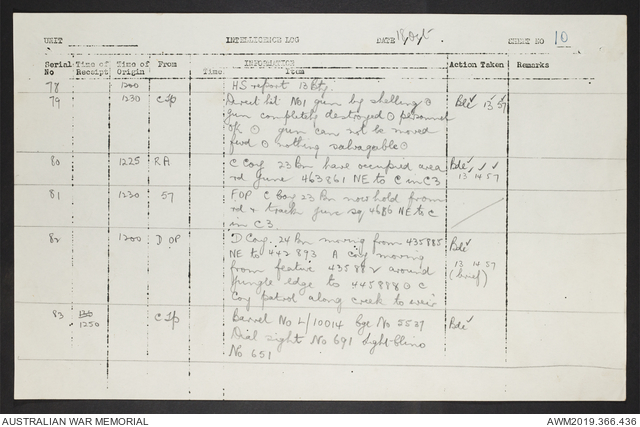 UNIT INTELLIGENCE LOG DATE SHEET NO 10
Serial Time of Time of From INFORMATION Action Taken Remarks
No Receipt Origin Time Item
78 1200 HS report 13 Bty.
79 1230 C Tp Direct hit No1 gun by shelling ⊙ Bde ✓ 13 57
gun completely destroyed ⊙ personnel
OK ⊙ gun can not be moved
fwd ⊙ nothing salvagable ⊙
80 1225 RA C Coy 23 Bn have occupied area Bde ✓ ✓ ✓
rd junc 463861 NE to C in C3 13 14 57
81 1230 57 FOP C Coy 23 Bn now hold from
rd & track junc sq 4686 NE to C
in C3.
82 1200 D OP D Coy 24 Bn moving from 435885 Bde ✓
NE to 442893 A Coy moving 13 14 57
from feature around (brief)
jungle edge to 445888 ⊙ C
Coy patrol along creek to weir
83 1250 C Tp Barrel No L/10014 bge No 5537 Bde ✓
Dial sight No 691
No 651
AUSTRALIAN WAR MEMORIAL AWM2019.366.436